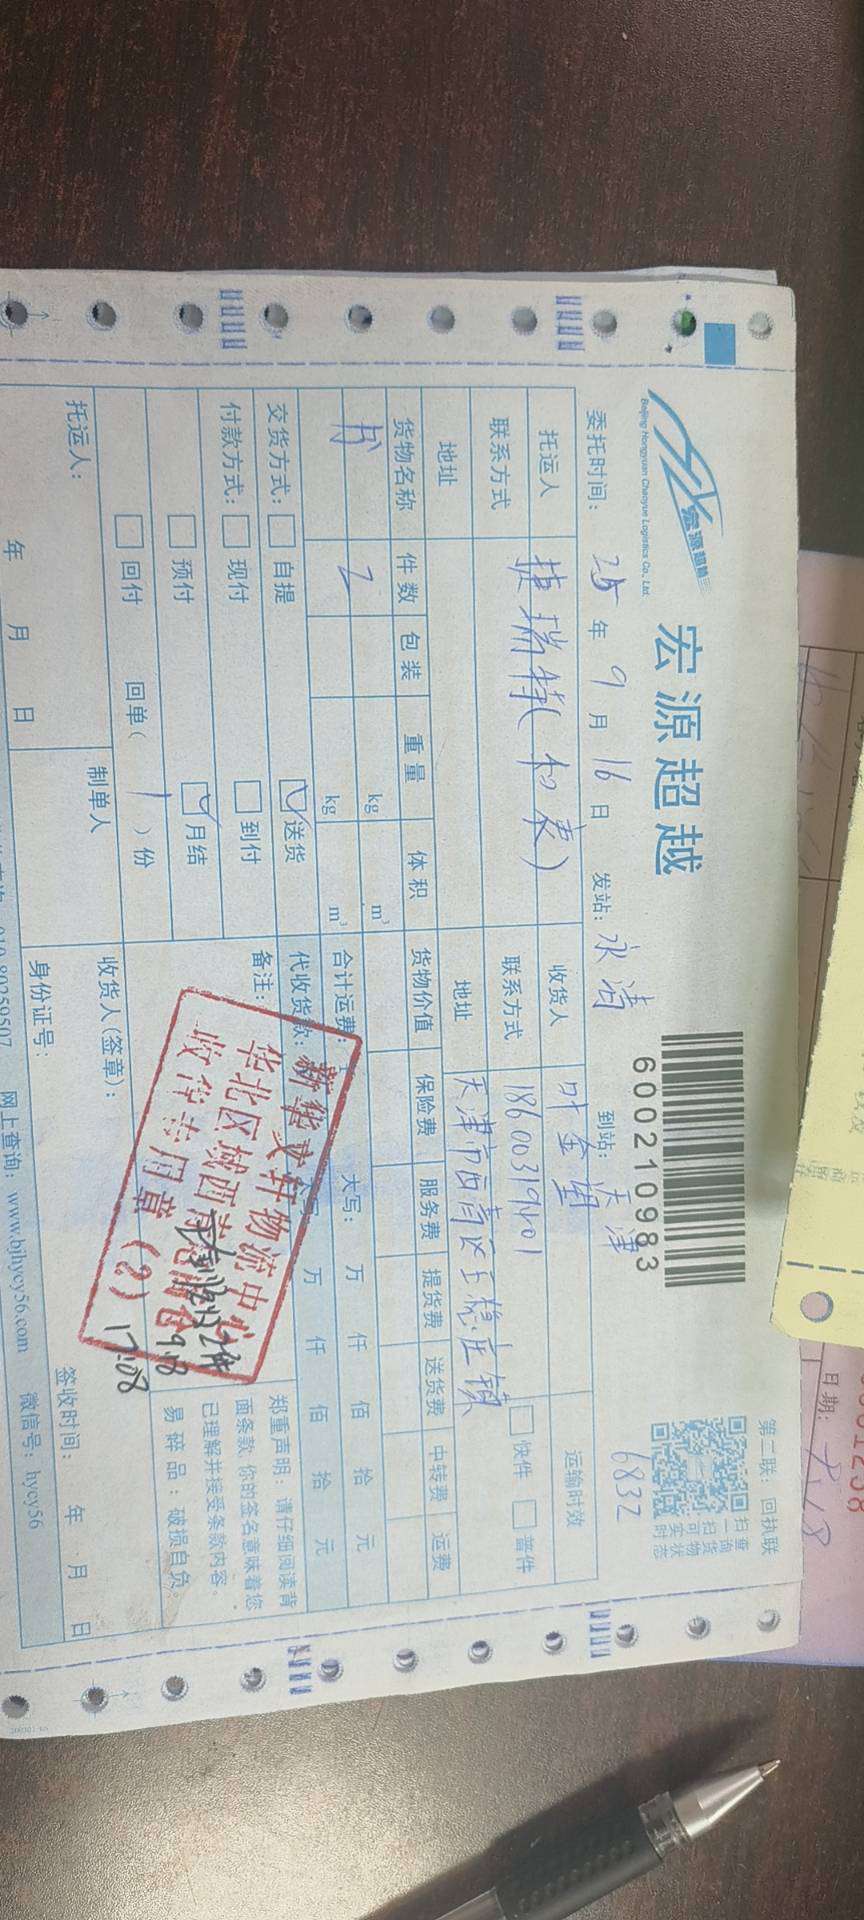 宏源超越
Beijing Hongyuan Chaoyue Logistics Co., Ltd.
宏源超越
600210983
第二联：回执联
扫一扫可实时
查询货物状态
委托时间： 25 年 9 月 16 日 发站： 永清 到站： 天津 6832
托运人 捷瑞特( ) 收货人 叶金 运输时效
联系方式 联系方式 快件 普件
地址 地址 天津市西青区王稳庄镇
货物名称 件数 包装 重量 体积 货物价值 保险费 服务费 提货费 送货费 中转费 运费
kg m³
书 2 kg m³ 合计运费： 大写： 万 仟 佰 拾 元
交货方式： 自提 送货 代收货款： 万 仟 佰 拾 元
付款方式： 现付 到付 备注：
预付 月结
回付 回单( 1 )份
郑重声明：请仔细阅读背
面条款 你的签名意味着您
已理解并接受条款内容。
易碎品：破损自负。
新华文轩物流中心
华北区域西青
收货专用章(2)
实收2件
9.18
17:08
托运人： 制单人 收货人(签章)：
年 月 日 身份证号： 签收时间： 年 月 日
010-80259507 网上查询：www.bjhycy56.com 微信号：hycy56
日期：